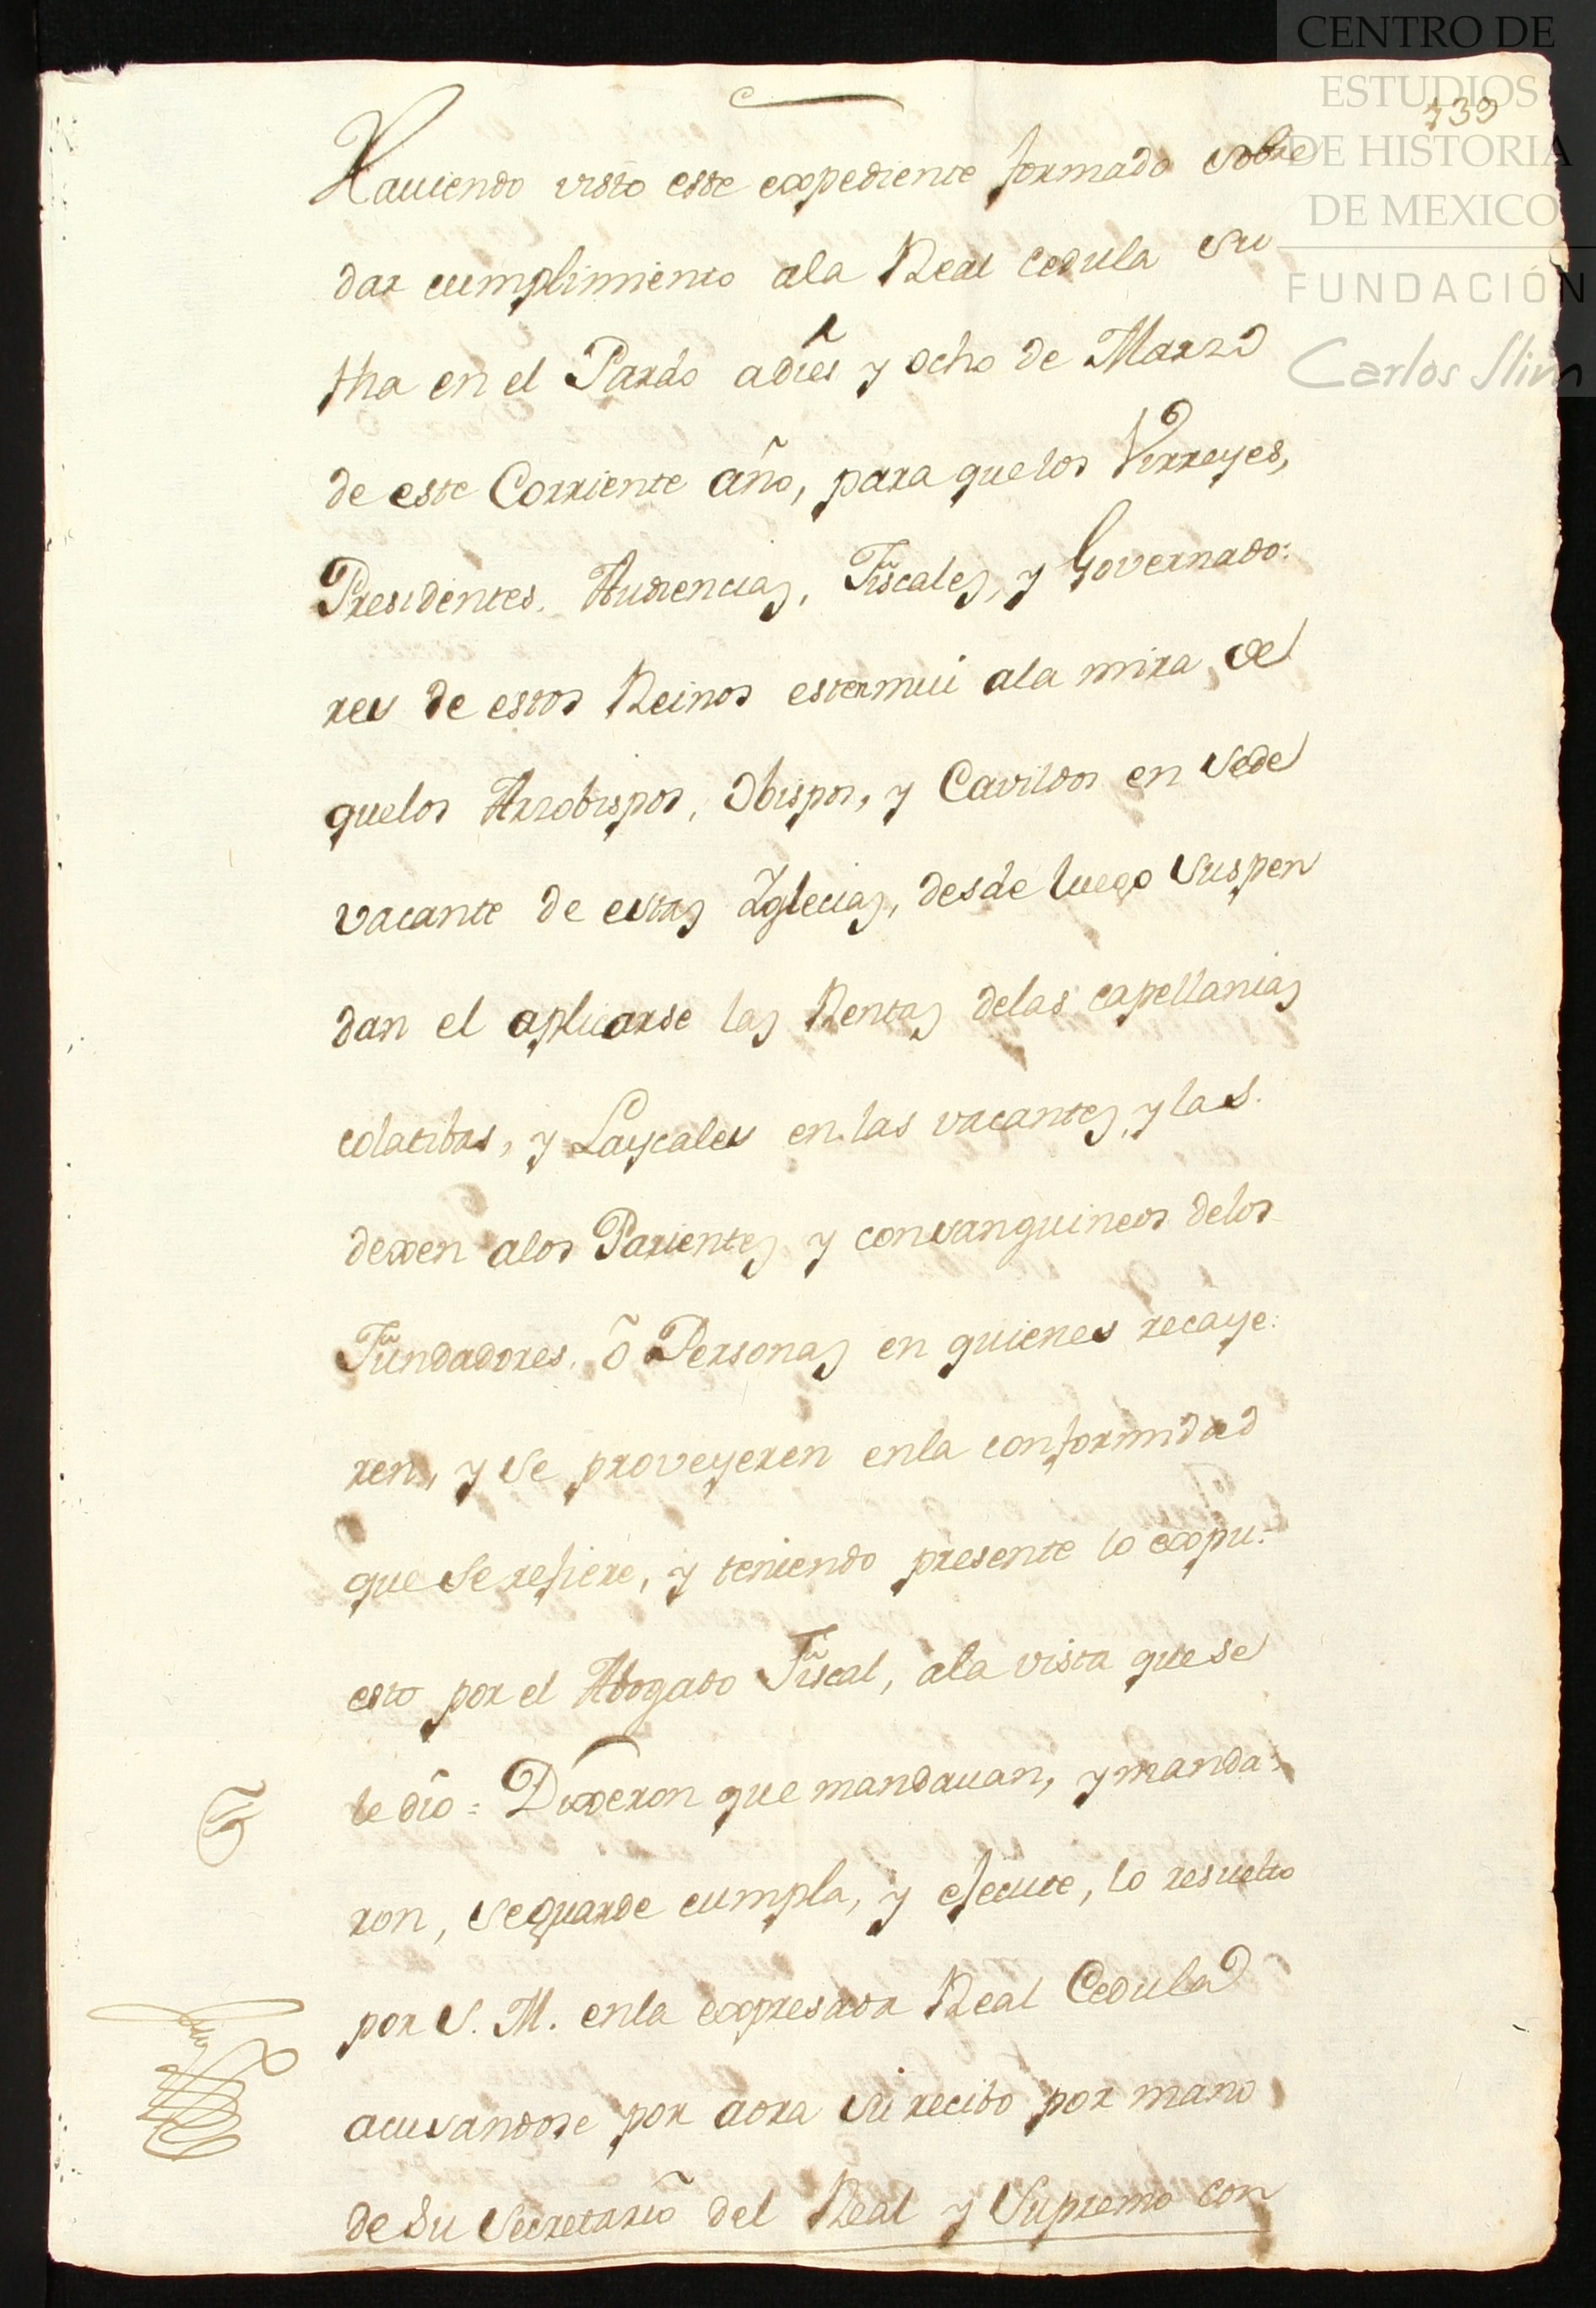 CENTRO DE
ESTUDIOS
DE HISTORIA
DE MEXICO
FUNDACIÓN
Carlos Slim
139
Haviendo visto este expediente formado sobre
dar cumplimiento ala Real cedula su
fha en el Pardo adies y ocho de Marzo
de este Corriente año, para quelos Virreyes,
Presidentes, Audiencias, Fiscales, y Governado:
res de estos Reinos esten mui ala mira, de
quelos Arzobispos, Obispos, y Cavildos en Sede
vacante de estas Iglecias, desde luego suspen
dan el aplicarse las Rentas delas capellanias
colatibas, y Laycales en las vacantes, y las
dexen alos Parientes y consanguineos delos
Fundadores, ó Personas en quienes recaye:
ren, y se proveyeren enla conformidad
que se refiere, y teniendo presente lo expu:
esto por el Abogado Fiscal, ala vista que se
le dió = Dixeron que mandavan, y manda:
ron, se guarde cumpla, y efecute, lo resuelto
por S. M. enla expresada Real Cedula
acusandose por aora su recibo por mano
de su Secretario del Real y Supremo con